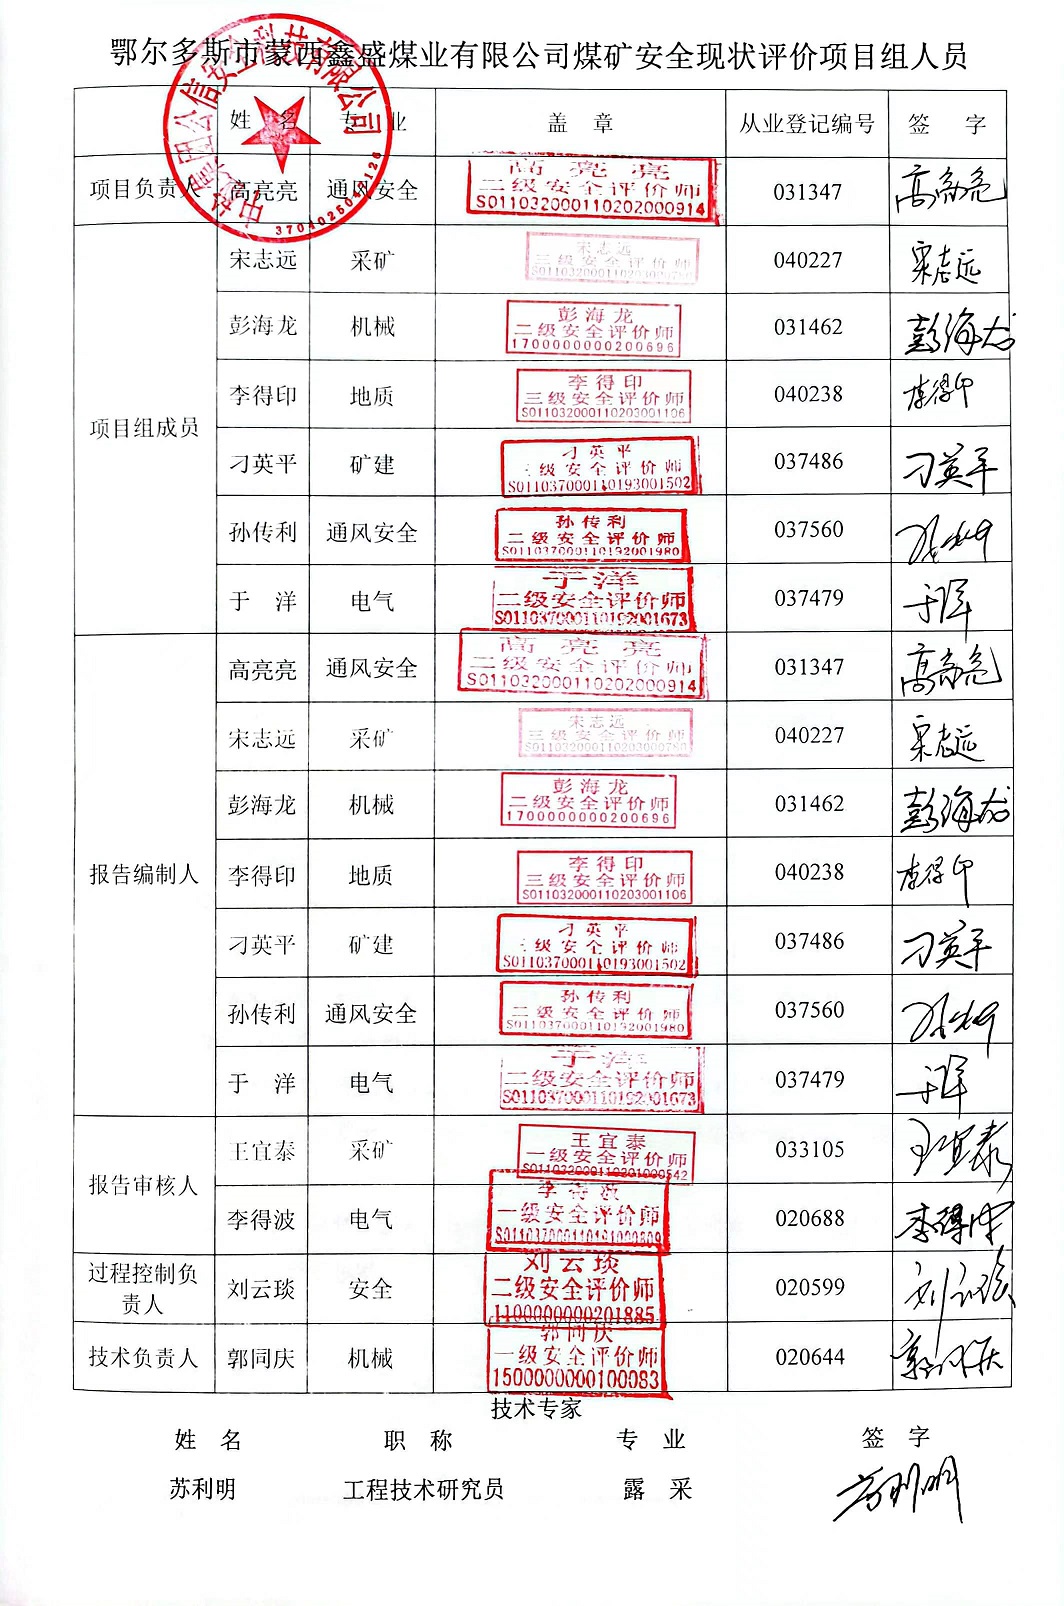 鄂尔多斯市蒙西鑫盛煤业有限公司煤矿安全现状评价项目组人员
姓 名 专 业 盖 章 从业登记编号 签 字
项目负责人 高亮亮 通风安全 高亮亮 二级安全评价师 S011032000110202000914 031347 高亮亮
项目组成员
宋志远 采矿 宋志远 三级安全评价师 040227 宋志远
彭海龙 机械 彭海龙 二级安全评价师 1700000000200696 031462 彭海龙
李得印 地质 李得印 三级安全评价师 S011032000110203001106 040238 李得印
刁英平 矿建 刁英平 三级安全评价师 S011037000110193001502 037486 刁英平
孙传利 通风安全 孙传利 二级安全评价师 S011037000110192001980 037560 孙传利
于 洋 电气 于洋 二级安全评价师 S011037000110192001673 037479 于洋
报告编制人
高亮亮 通风安全 高亮亮 二级安全评价师 S011032000110202000914 031347 高亮亮
宋志远 采矿 宋志远 三级安全评价师 040227 宋志远
彭海龙 机械 彭海龙 二级安全评价师 1700000000200696 031462 彭海龙
李得印 地质 李得印 三级安全评价师 S011032000110203001106 040238 李得印
刁英平 矿建 刁英平 三级安全评价师 S011037000110193001502 037486 刁英平
孙传利 通风安全 孙传利 二级安全评价师 S011037000110192001980 037560 孙传利
于 洋 电气 于洋 二级安全评价师 S011037000110192001673 037479 于洋
报告审核人
王宜泰 采矿 王宜泰 一级安全评价师 S011032000110201000542 033105 王宜泰
李得波 电气 李得波 一级安全评价师 020688 李得波
过程控制负责人 刘云琰 安全 刘云琰 二级安全评价师 1100000000201885 020599 刘云琰
技术负责人 郭同庆 机械 郭同庆 一级安全评价师 1500000000100083 020644 郭同庆
技术专家
姓 名 职 称 专 业 签 字
苏利明 工程技术研究员 露 采 苏利明